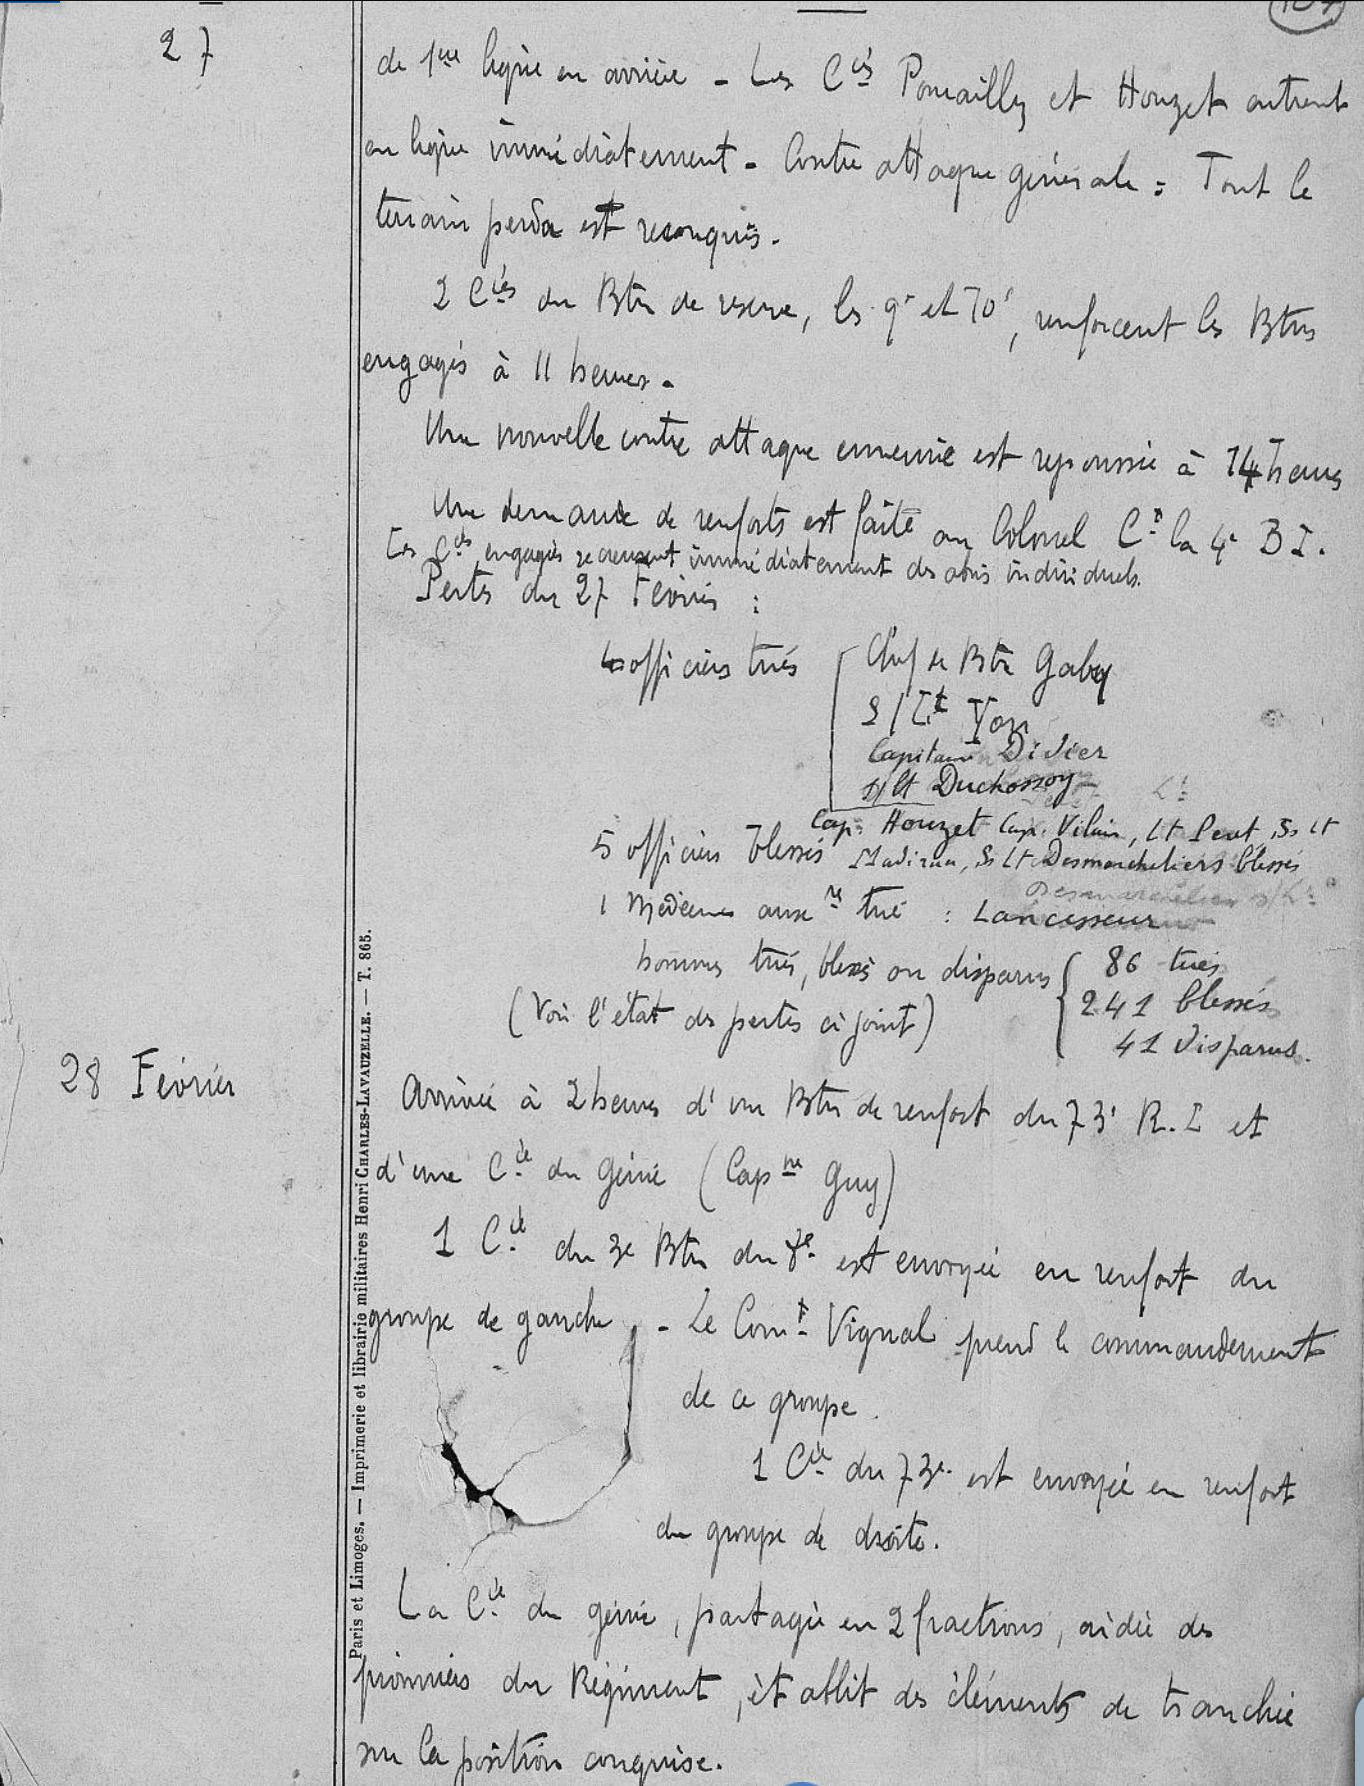 27
de 1ère ligne en arrière - Les Cies Pomailly et Houzet entrent
en ligne immédiatement - Contre attaque générale : Tout le
terrain perdu est reconquis.
2 Cies du Btn de réserve, les 9e et 10e, renforcent les Btns
engagés à 11 heures -
Une nouvelle contre attaque ennemie est repoussée à 14 heures
Une demande de renforts est faite au Colonel Ct la 4e B I.
Les Cies engagées se creusent immédiatement des abris individuels.
Pertes du 27 Février :
4 officiers tués
Chef de Btn Gaby
S/Lt Yon
Capitaine Didier
s/lt Duchossoy
Cap. Houzet Cap. Vilain, Lt Peut, Ss Lt
5 officiers blessés
, Ss Lt Desmarcheliers blessés
Desmarchelier s/Lt
1 Médecin auxre tué : Lancesseur
hommes tués, blessés ou disparus
86 tués
241 blessés
41 disparus.
(Voir l'état des pertes ci joint)
28 Février
Arrivée à 2 heures d'un Btn de renfort du 73e R. I et
d'une Cie du Génie (Capne Guy)
1 Cie du 3e Btn du 8e est envoyée en renfort du
groupe de gauche - Le Comt Vignal prend le commandement
de ce groupe.
1 Cie du 73e est envoyée en renfort
du groupe de droite.
La Cie du génie, partagée en 2 fractions, aidée des
pionniers du Régiment, établit des éléments de tranchée
sur la position conquise.
Paris et Limoges. — Imprimerie et librairie militaires Henri CHARLES-LAVAUZELLE. — T. 865.